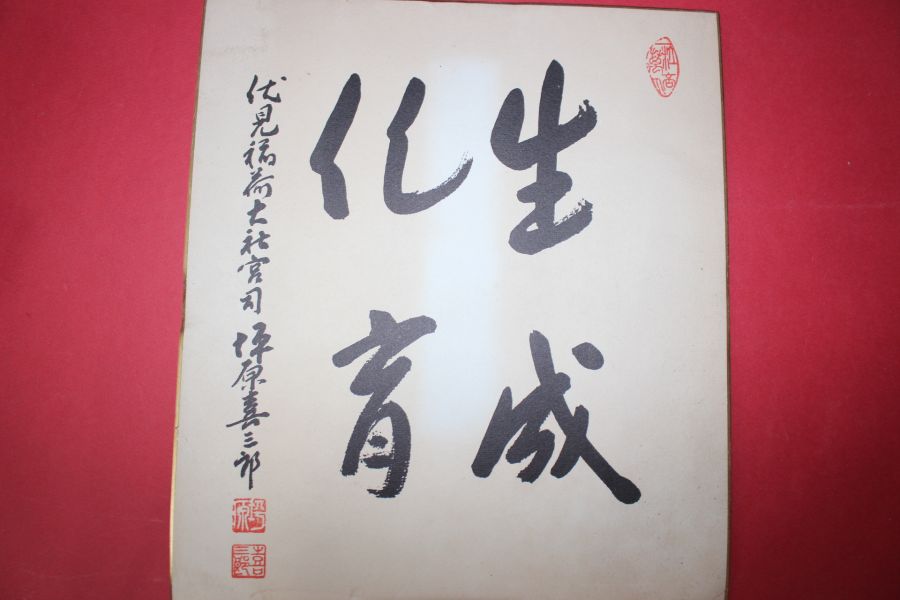 生成
化育
伏見稲荷大社宮司 坪原喜三郎